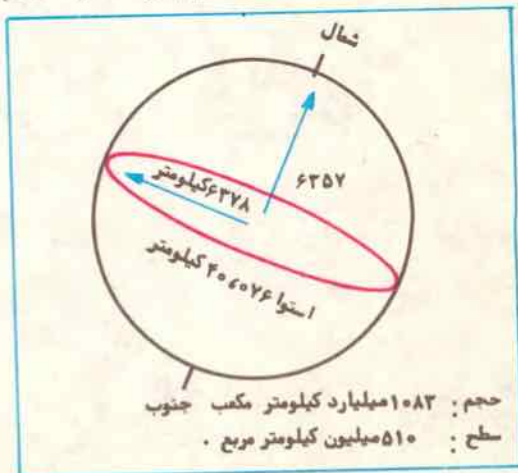 شمال
۶۳۵۷
۶۳۷۸ کیلومتر
استوا ۴۰،۰۷۶ کیلومتر
جنوب
حجم : ۱۰۸۳ میلیارد کیلومتر مکعب
سطح : ۵۱۰ میلیون کیلومتر مربع .